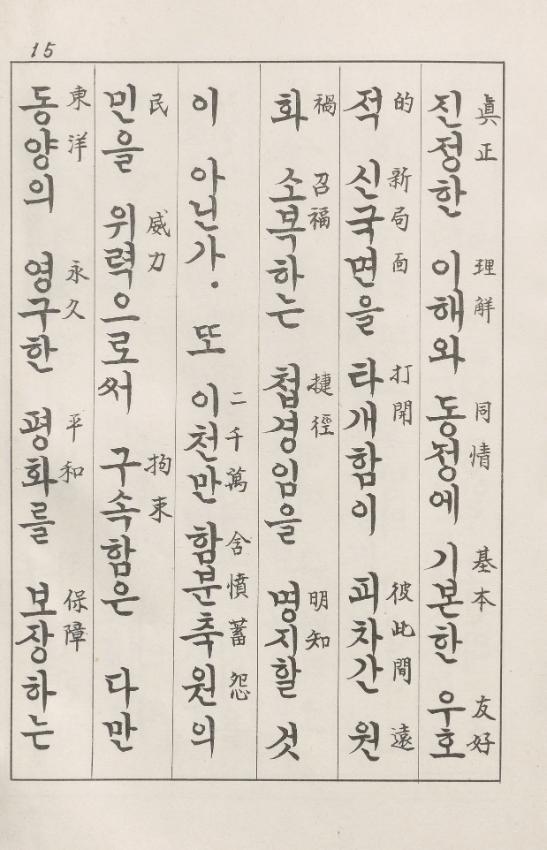 15
진정한 이해와 동정에 기본한 우호
眞正 理解 同情 基本 友好
적 신국면을 타개함이 피차간 원
的 新局面 打開 彼此間 遠
화 소복하는 첩경임을 명지할 것
禍 召福 捷徑 明知
이 아닌가. 또 이천만 함분축원의
二千萬 含憤蓄怨
민을 위력으로써 구속함은 다만
民 威力 拘束
동양의 영구한 평화를 보장하는
東洋 永久 平和 保障